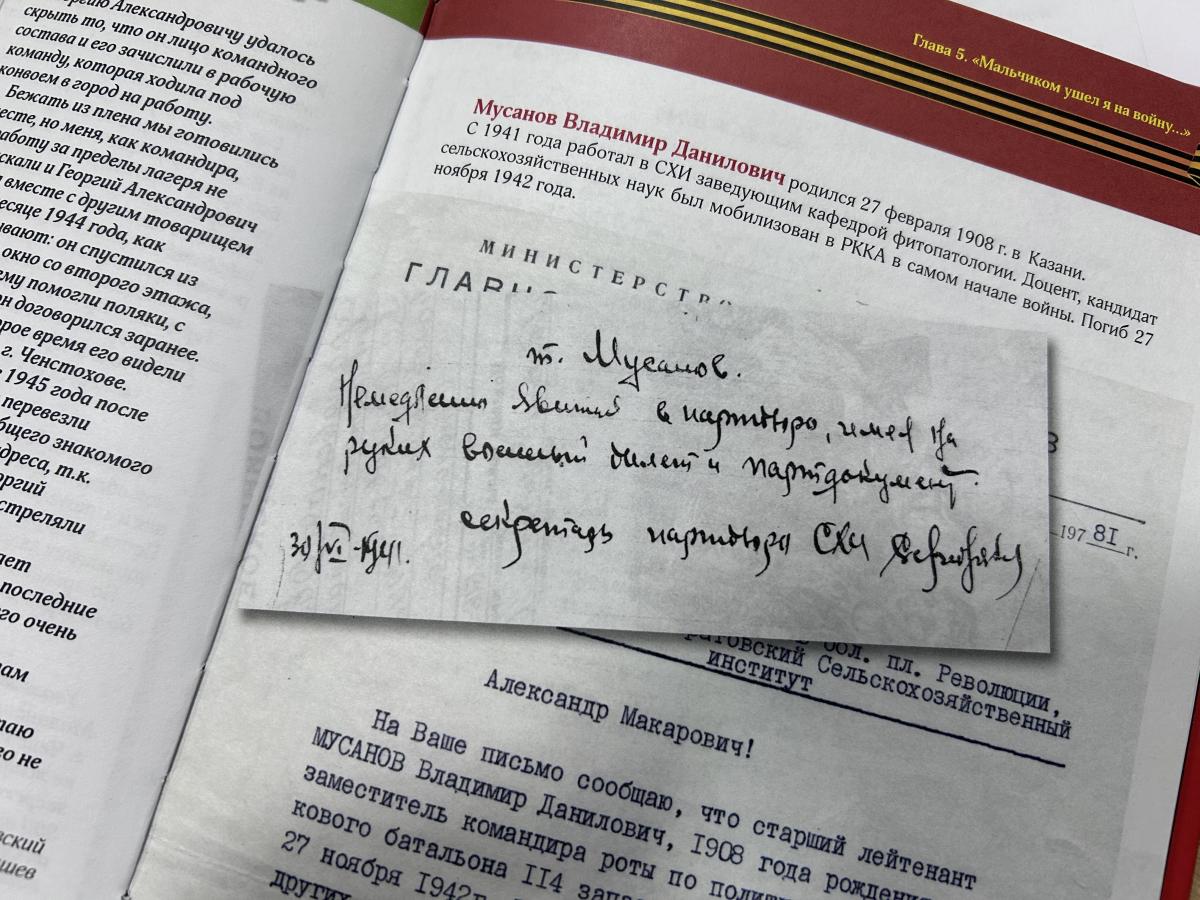 ргию Александровичу удалось
скрыть то, что он лицо командного
состава и его зачислили в рабочую
команду, которая ходила под
конвоем в город на работу.
Бежать из плена мы готовились
месте, но меня, как командира,
работу за пределы лагеря не
скали и Георгий Александрович
вместе с другим товарищем
есяце 1944 года, как
ывают: он спустился из
окно со второго этажа,
ему помогли поляки, с
он договорился заранее.
рое время его видели
г. Ченстохове.
1945 года после
перевезли
бщего знакомого
дреса, т.к.
оргий
стреляли
ает
последние
го очень
ам
таю
го не
вский
шев
Глава 5. «Мальчиком ушел я на войну...»
Мусанов Владимир Данилович родился 27 февраля 1908 г. в Казани.
С 1941 года работал в СХИ заведующим кафедрой фитопатологии. Доцент, кандидат
сельскохозяйственных наук был мобилизован в РККА в самом начале войны. Погиб 27
ноября 1942 года.
МИНИСТЕРСТВ
ГЛАВНО
т. Мусанов.
Немедленно явиться в партбюро, имея на
руках военный билет и партдокумент.
секретарь партбюро СХИ
30/VI-1941.
197 81 г.
бол. пл. Революции,
ратовский Сельскохозяйственный
институт
Александр Макарович!
На Ваше письмо сообщаю, что старший лейтенант
МУСАНОВ Владимир Данилович, 1908 года рождени
заместитель командира роты по полит
кового батальона 114 запа
27 ноября 1942г.
других